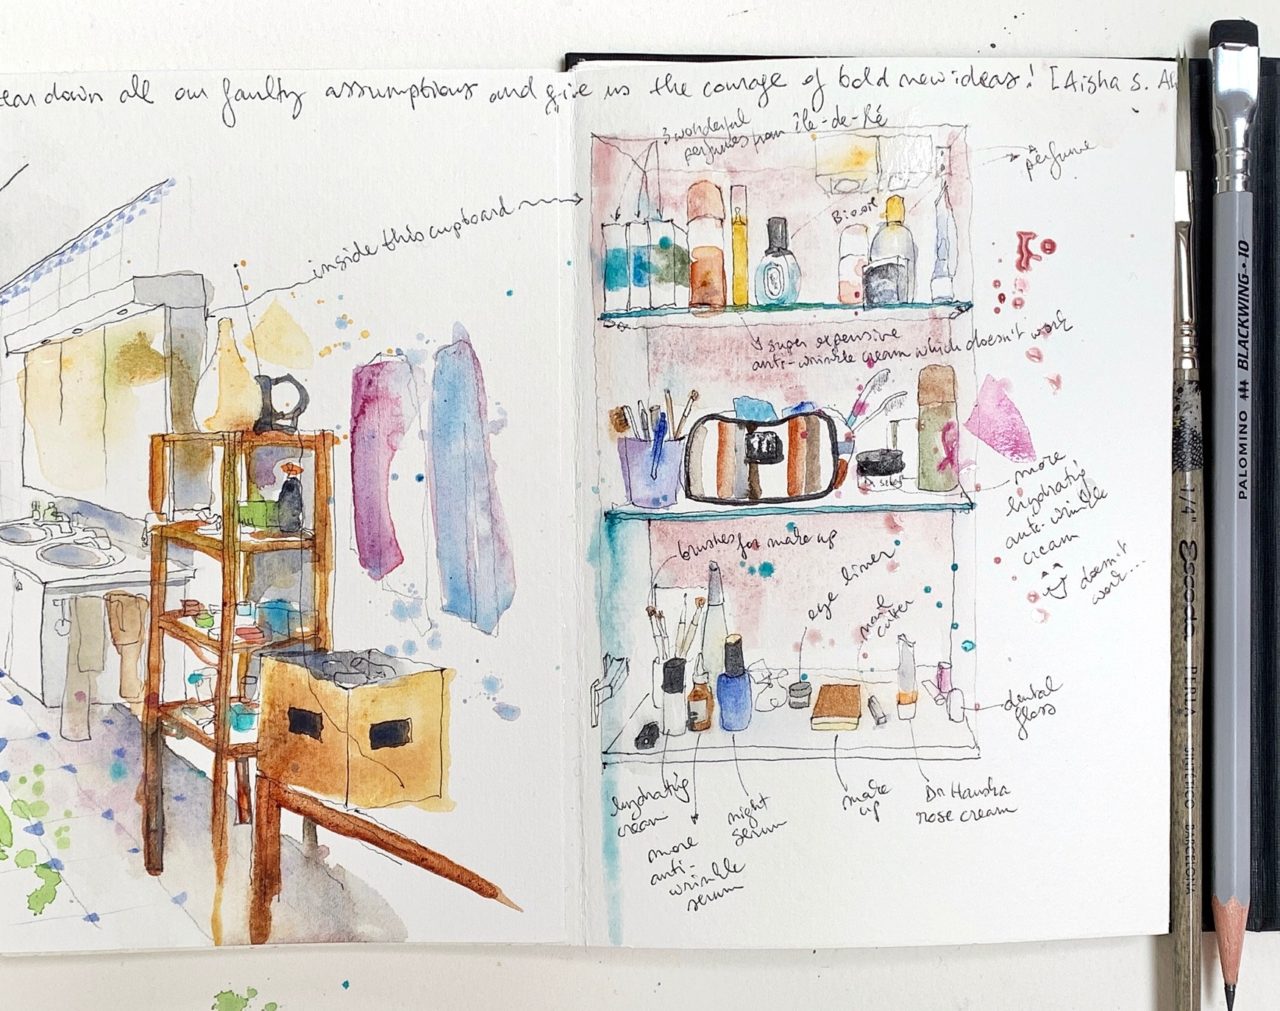 tear down all our faulty assumptions and give us the courage of bold new ideas! [Aisha S. Ah
3 wonderful
perfumes from île-de-Ré
perfume
inside this cupboard
Bio oil
super expensive
anti-wrinkle cream which doesn't work
more
hydrating
anti-wrinkle
cream
doesn't
work...
brushes for make up
eye liner
nail
cutter
dental
floss
hydrating
cream
more
anti-
wrinkle
serum
night
serum
make
up
Dr Hauska
rose cream
PALOMINO BLACKWING·10
1/4" Escoda PERLA SINTÉTICO BARCELONA